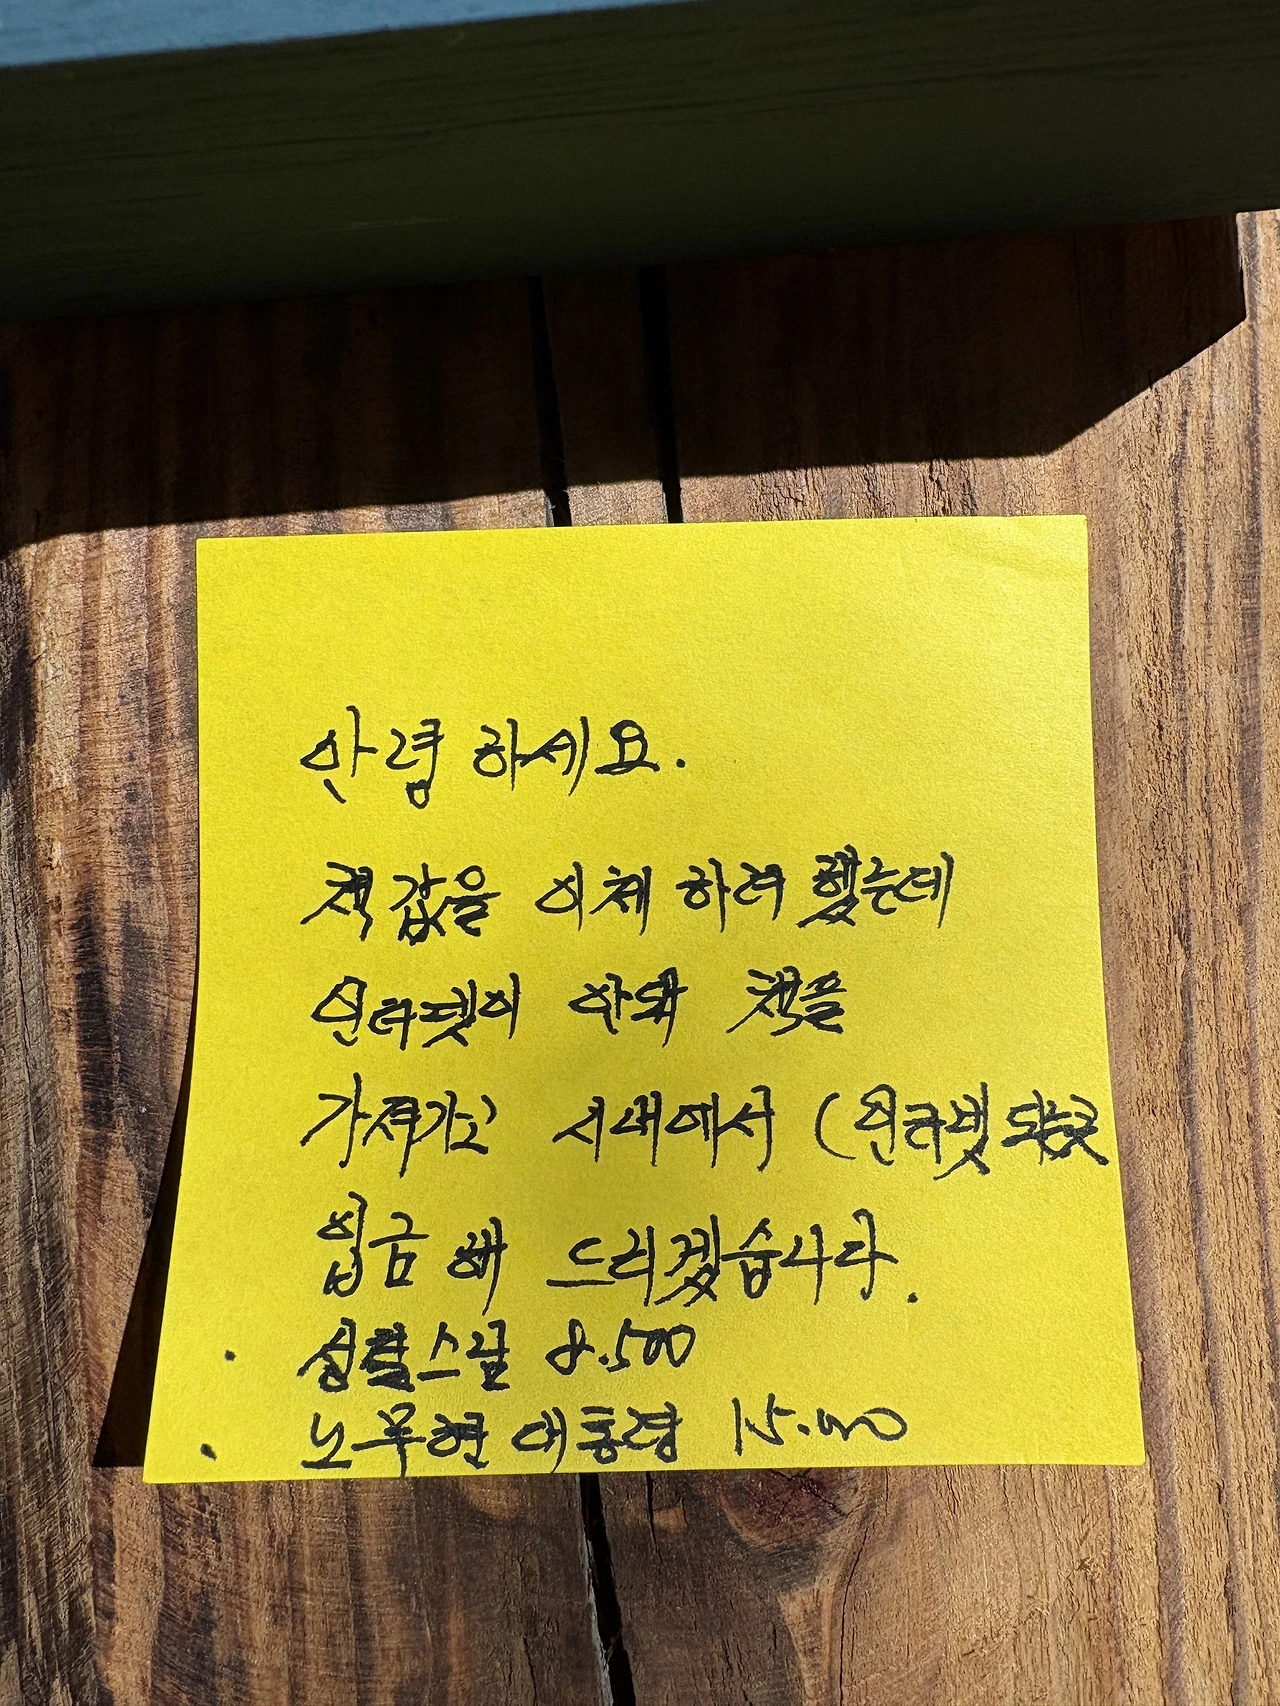 안녕 하세요.
책값을 이체 하려 했는데
인터넷이 안돼 책을
가져가고 시내에서 (인터넷 되는곳
입금해 드리겠습니다.
8.500
노무현 대통령 15.000